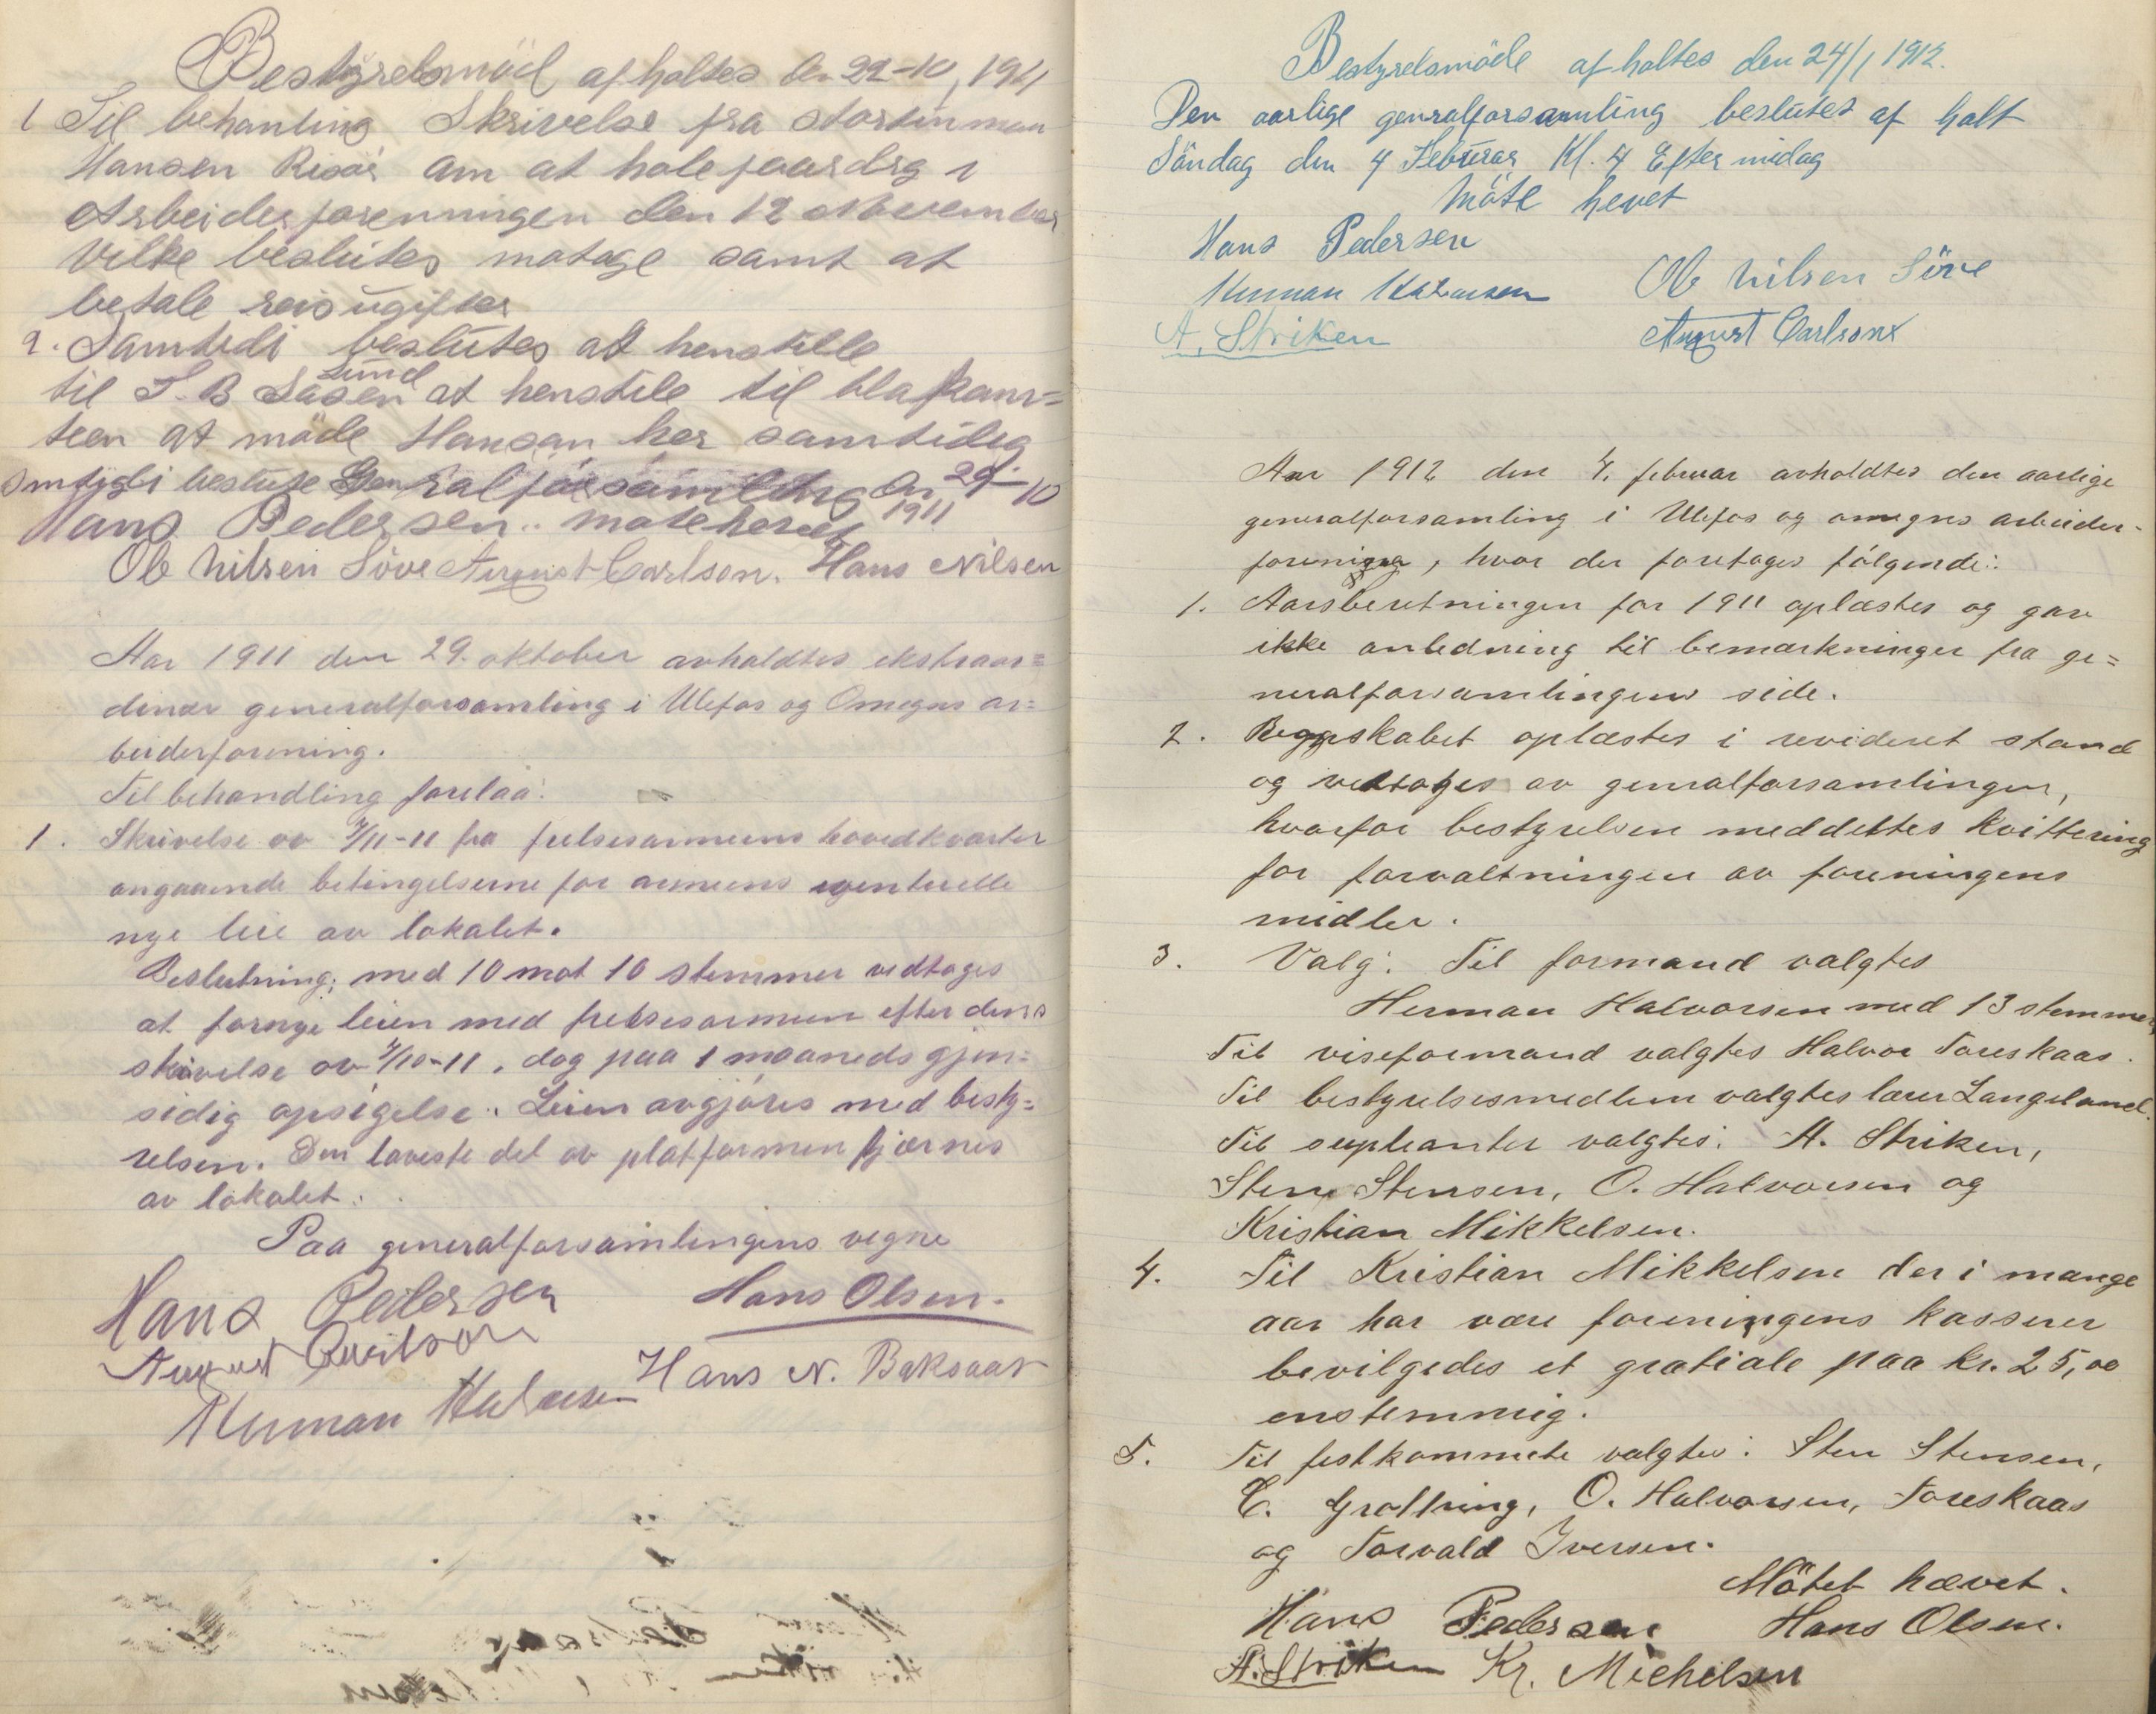 Bestyrelsmöd af holtes den 22-10, 1911
1 Til behanling Skrivelse fra stortinman
Hansen Risör am at hole foardrg i
Arbeiderforenningen den 12 November
Vilke beslutes motage samt at
betale reisugifter
2. Samtidi beslutes at henstille
til S. B Lasen Lund at henstile til bla
teen at möde Hansan her samtidig
beslute Genralforsamling den 29-10
1911
Hans Pedersen.. möte hevet
Ole Nilsen Söve August Carlson. Hans Nilsen
Aar 1911 den 29. oktober avholdtes ekstraor=
dinær generalforsamling i Ulefos og Omegns ar=
beiderforening.
Til behandling forelaa:
1. Skrivelse av 7/11-11 fra frelsesarmeens hovedkvarter
angaaende betingelserne for armeens eventuelle
nye leie av lokalet.
Beslutning: med 10 mot 10 stemmer vedtoges
at fornye leien med frelsesarmeen efter dens
skrivelse av 7/10-11, dog paa 1 maaneds gjen=
sidig opsigelse. Leien avgjöres med besty=
relsen. Den laveste del av platformen fjærnes
av lokalet.
Paa generalforsamlingens vegne
Hans Pedersen Hans Olsen.
August Carlson
Hans N. Baksaas
Herman Halvorsen
Bestyrelsmöde af holtes den 24/1 1912.
Den aarlige genralforsamling beslutes af holt
Söndag den 4 Februar Kl. 4 Efter midag
Möte hevet
Hans Pedersen
Herman Halvorsen Ole Nilsen Söve
A. Striken August Carlsons
Aar 1912 den 4. februar avholdtes den aarlige
generalforsamling i Ulefos og omegns arbeider-
forening, hvor der foretoges fölgende:
1. Aarsberetningen for 1911 oplæstes og gav
ikke anledning til bemærkninger fra ge=
neralforsamlingens side.
2. Regnskabet oplæstes i revideret stand
og vedtoges av genralforsamlingen,
hvorfor bestyrelsen meddeltes kvittering
for forvaltningen av foreningens
midler.
3. Valg: Til formand valgtes
Herman Halvorsen med 13 stemmer
Til viseformand valgtes Halvor Toreskaas.
Til bestyrelsesmedlem valgtes lærer Langeland.
Til supleanter valgtes: A. Striken,
Sten Stensen, O. Halvorsen og
Kristian Mikkelsen.
4. Til Kristian Mikkelsen der i mange
aar har være foreningens kasserer
bevilgedes et gratiale paa kr. 25,00
enstemmig.
5. Til festkommete valgtes: Sten Stensen,
C. Grotting, O. Halvorsen, Toreskaas
og Torvald Iversen.
Mötet hævet.
Hans Pedersen Hans Olsen.
A. Striken Kr. Michelsen